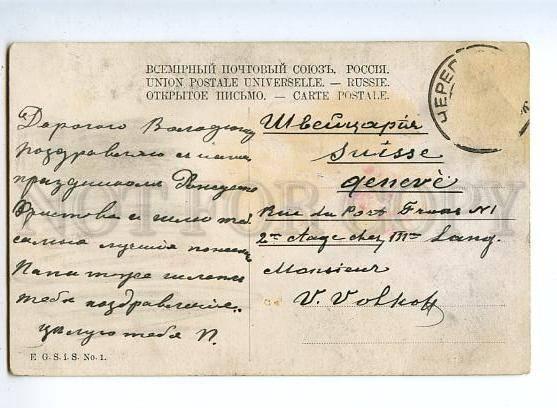 ВСЕМІРНЫЙ ПОЧТОВЫЙ СОЮЗЪ. РОССІЯ.
UNION POSTALE UNIVERSELLE. — RUSSIE.
ОТКРЫТОЕ ПИСЬМО. — CARTE POSTALE.
ЧЕРЕП
Дорогого Володю
поздравляю съ
праздникомъ Рождества
Христова и шлю тебѣ
самыя лучшія
Папа тоже шлетъ
тебѣ поздравленіе.
цѣлую тебя П.
Швейцарія
Suisse
Genevè
Rue du Port Franc N1
2me Etage chez Mme Lang.
Monsieur
V. Volkoff
E. G. S. i. S. No. 1.
NOT FOR COPY